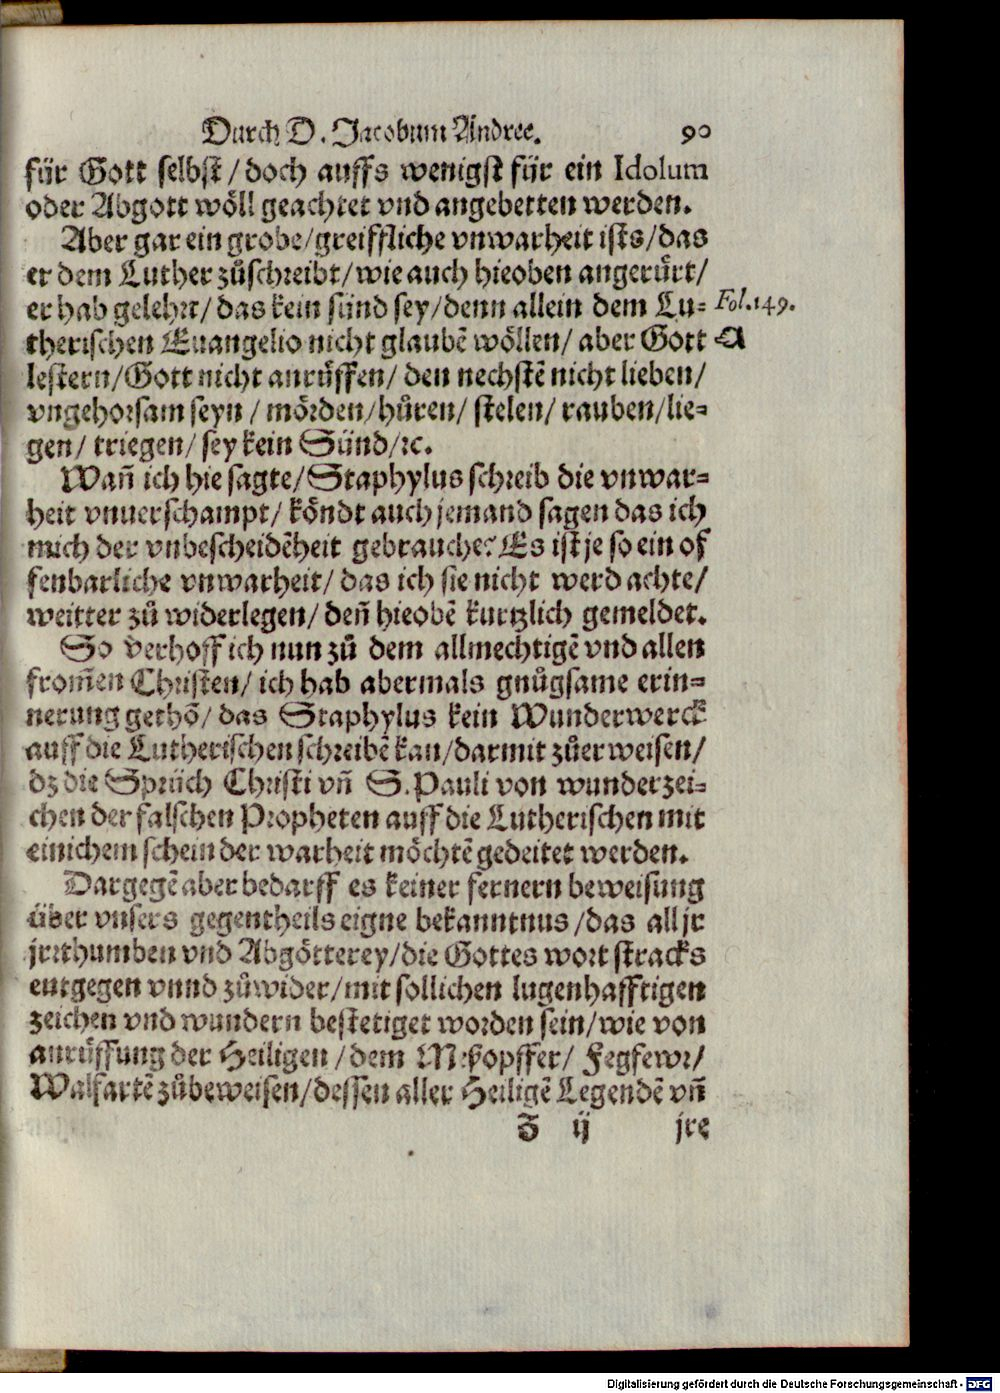 Durch D. Jacobum Andree. 90
für Gott selbst / doch auffs wenigst für ein Idolum
oder Abgott wöll geachtet vnd angebetten werden.
Aber gar ein grobe/greiffliche vnwarheit ists/das
er dem Luther zůschreibt/wie auch hieoben angerürt/
er hab gelehrt/das kein sünd sey/denn allein dem Lu= Fol.149.
therischen Euangelio nicht glaubē wöllen/ aber Gott A
lestern/Gott nicht anrüffen/ den nechstē nicht lieben/
vngehorsam seyn / mörden/hůren/ stelen/ rauben/lie=
gen/ triegen/ sey kein Sünd/ꝛc.
Wañ ich hie sagte/Staphylus schreib die vnwar=
heit vnuerschampt/ köndt auch jemand sagen das ich
mich der vnbescheidēheit gebrauche? Es ist je so ein of
fenbarliche vnwarheit/ das ich sie nicht werd achte/
weitter zů widerlegen/ deñ hieobē kurtzlich gemeldet.
So verhoff ich nun zů dem allmechtigē vnd allen
from̃en Christen/ ich hab abermals gnůgsame erin=
nerung gethō/ das Staphylus kein Wunderwerck
auff die Lutherischen schreibē kan/darmit zůerweisen/
dz die Sprüch Christi vñ S.Pauli von wunderzei=
chen der falschen Propheten auff die Lutherischen mit
einichem schein der warheit möchtē gedeitet werden.
Dargegē aber bedarff es keiner fernern beweisung
über vnsers gegentheils eigne bekanntnus /das all jr
jrrthumben vnd Abgötterey/die Gottes wort stracks
entgegen vnnd zůwider/mit sollichen lugenhafftigen
zeichen vnd wundern bestetiget worden sein/wie von
anrüffung der Heiligen /dem Meßopffer/ Fegfewr/
Walfartē zůbeweisen/dessen aller Heiligē Legendē vñ
Z ij jre
Digitalisierung gefördert durch die Deutsche Forschungsgemeinschaft - DFG